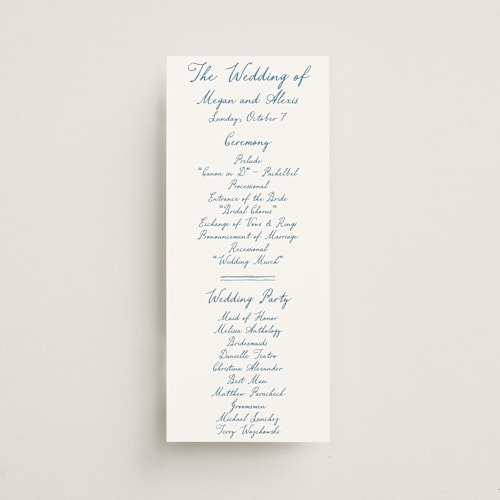 The Wedding of
Megan and Alexis
Sunday, October 7
Ceremony
Prelude
"Canon in D" - Pachelbel
Processional
Entrance of the Bride
"Bridal Chorus"
Exchange of Vows & Rings
Pronouncement of Marriage
Recessional
"Wedding March"
Wedding Party
Maid of Honor
Melissa Anthology
Bridesmaids
Danielle Teatro
Christina Alexander
Best Man
Matthew Paracheck
Groomsmen
Michael Lanchez
Terry Wojchowski